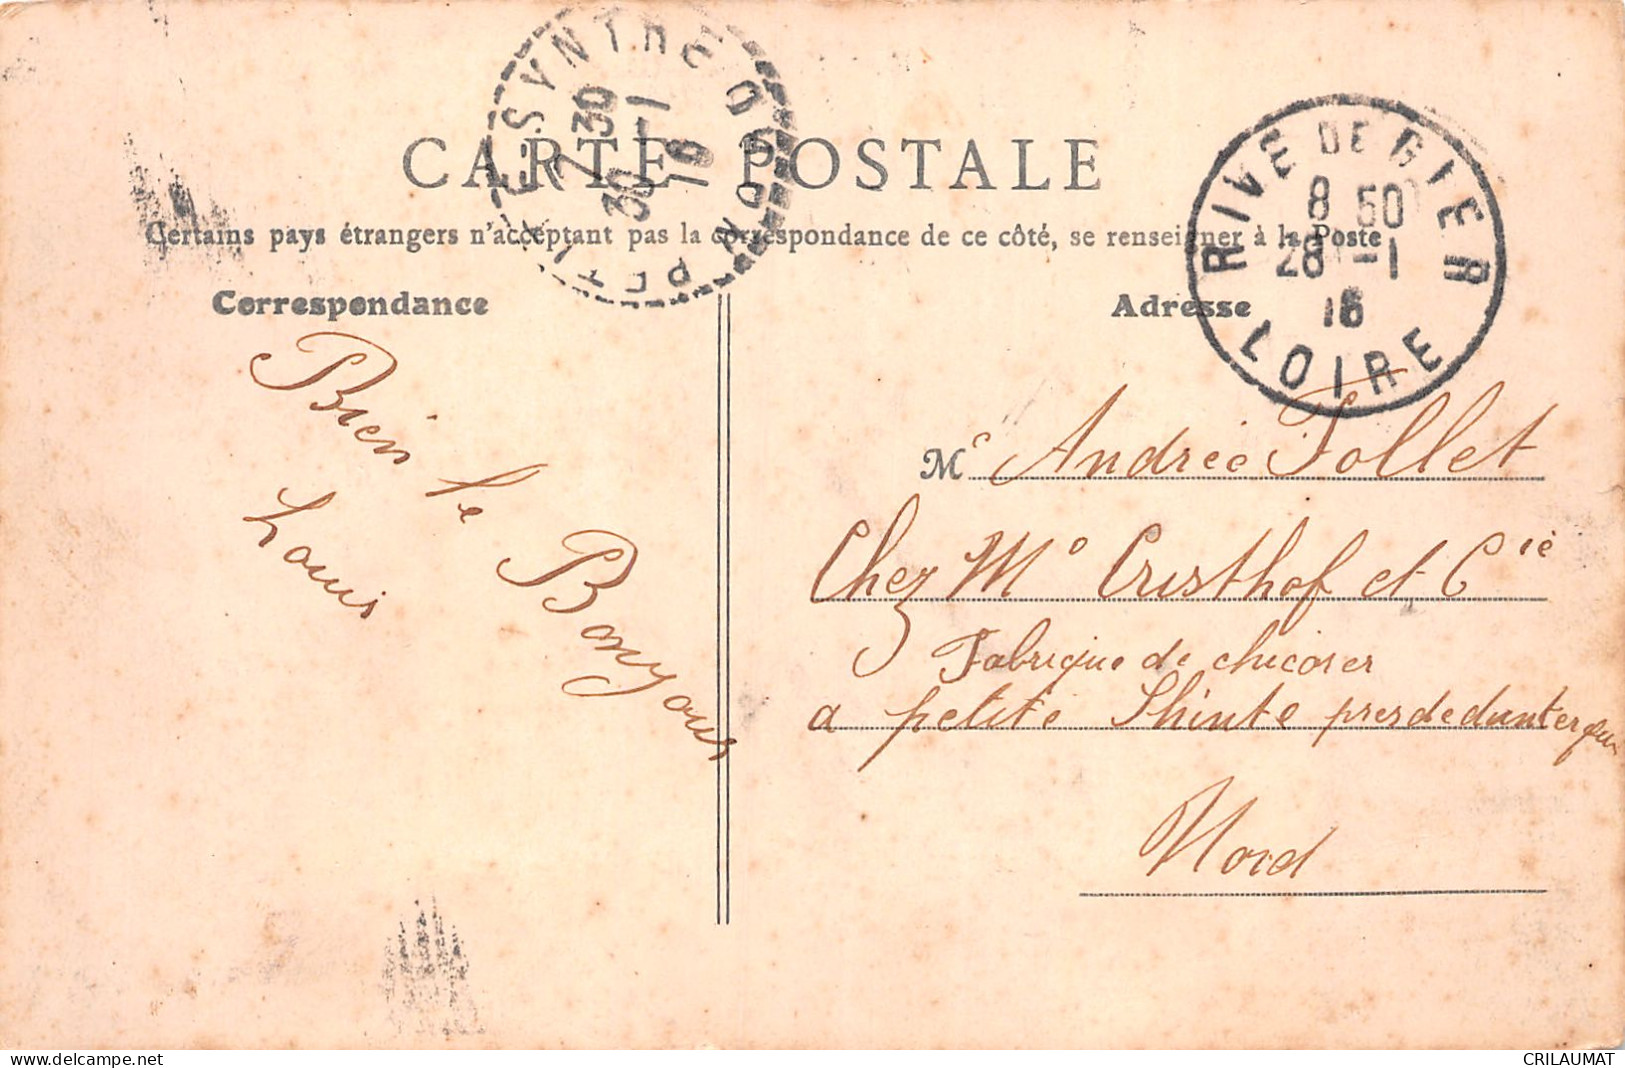 PETITE SYNTHE NORD
7 30
30 -1
16
CARTE POSTALE
RIVE DE GIER
8 50
28 -1
16
LOIRE
Certains pays étrangers n'acceptant pas la correspondance de ce côté, se renseigner à la Poste
Correspondance
Adresse
Bien le Bonjours
Louis
M Andrée Follet
Chez Mº Cristhof et Cie
Fabrique de chicorer
a petite Shinte pres de dunterque
Nord
CRILAUMAT
www.delcampe.net